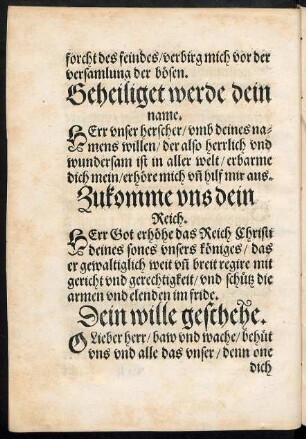 forcht des feindes/verbirg mich vor der
versamlung der bösen.
Geheiliget werde dein
name.
HErr vnser herscher/vmb deines na-
mens willen/der also herrlich vnd
wundersam ist in aller welt/erbarme
dich mein/erhöre mich vñ hilf mir aus.
Zukomme vns dein
Reich.
HErr Got erhöhe das Reich Christi
deines sones vnsers königes/das
er gewaltiglich weit vñ breit regire mit
gericht vnd gerechtigkeit/vnd schütz die
armen vnd elenden im fride.
Dein wille geschehe.
O Lieber herr/baw vnd wache/behüt
vns vnd alle das vnser/denn one
dich